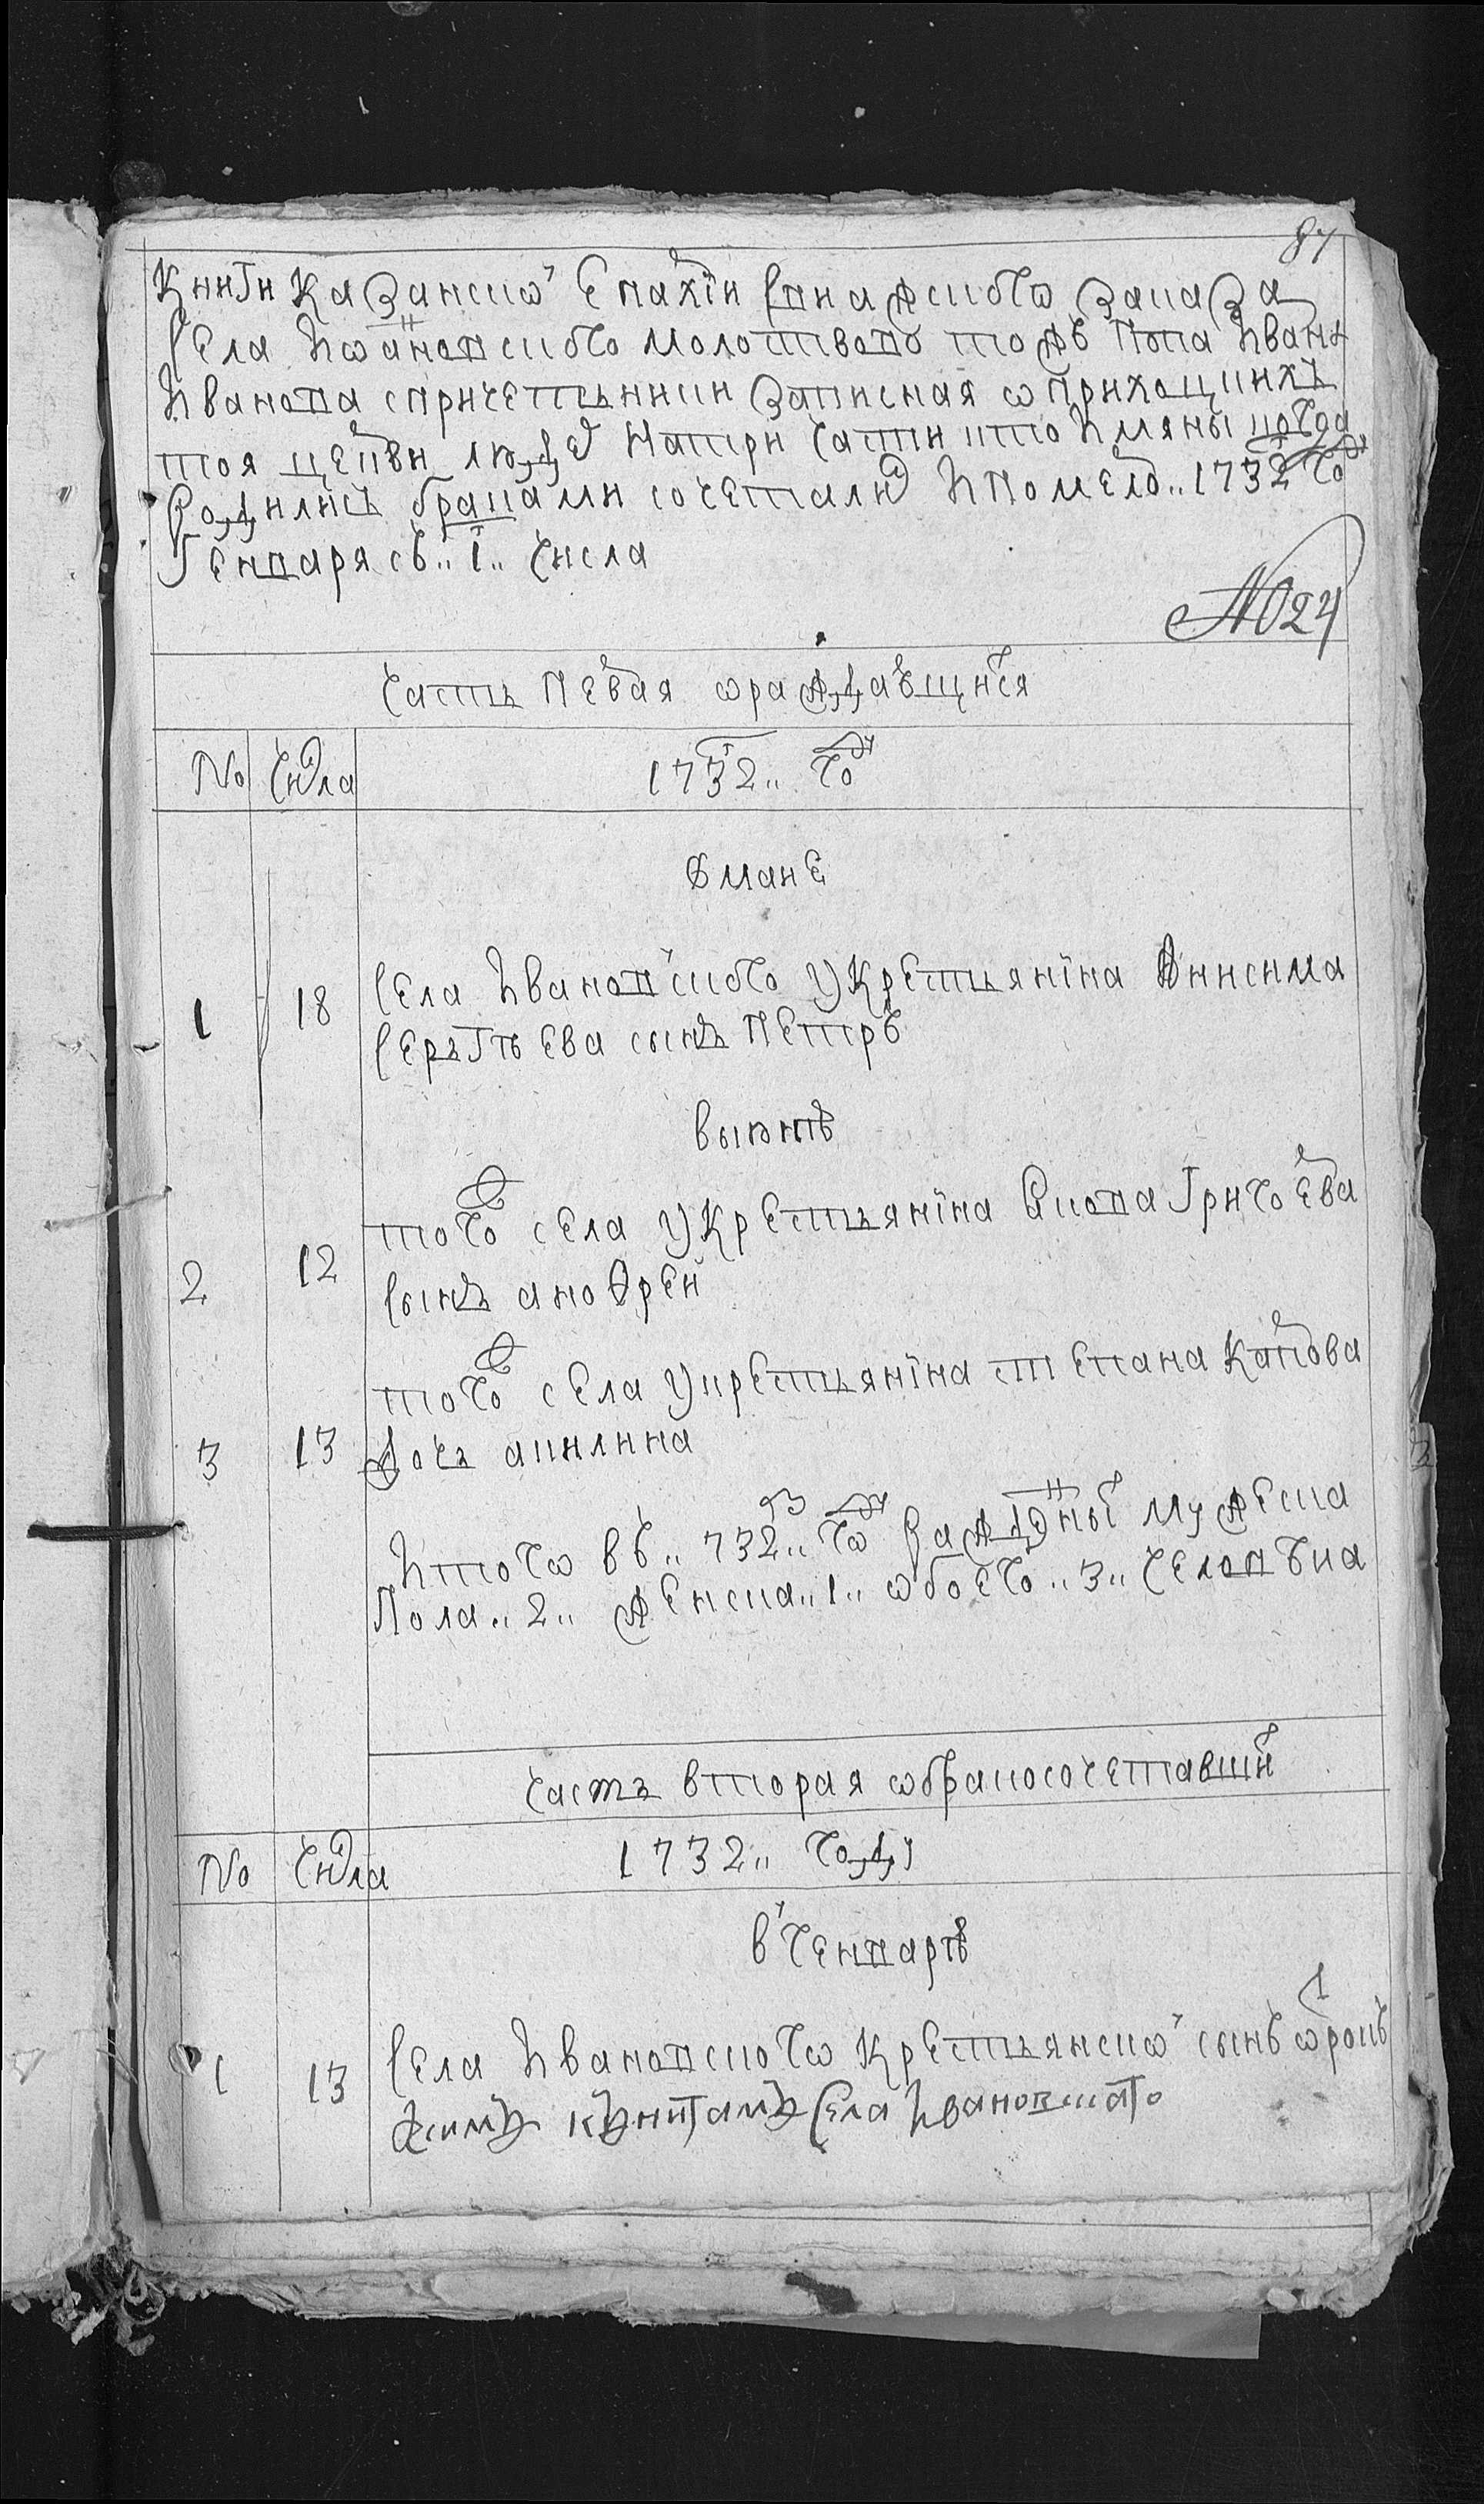 87
Книги Казанской Епархїи Свияжского Заказа
Села Иѡановского Молоствово тожъ Попа Ивана
Иванова спричетъники Записная ѡ Приходцкихъ
тоя церкви людей Натри части кто Имяны когда
Родились браками сочетались Ипомерло 1732 году
Генваря съ 1 числа
№ 24
часть Первая ѡраждаѣщихся
№ числа 1732 году
в мане
1 18 Села Ивановского у Крестьянїна Анисима
Серьгѣева сынъ Петръ
в июнѣ
2 12 того ж села у Крестьянїна Якова Григорева
сынъ анодрей
3 13 того ж села укрестьянїна степана Карпова
дочь акилина
Итого въ 732 году Раждѣнных мужеска
Пола 2 женска 1 ѡбоего 3 человѣка
часть вторая ѡбракосочетавших
№ числа 1732 году
в генварѣ
1 13 Села Ивановского Крестьянской сынъ ѡтрокъ
села Ивановскаго